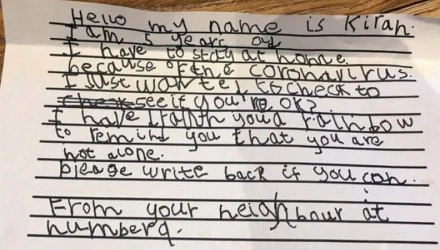 Hello my name is Kirah.
I am 5 years old
I have to stay at home
because of the coronavirus.
I Just wanted to check to
see if you're ok?
I have drawn you a rainbow
to remind you that you are
not alone.
please write back if you can.
From your neighbour at
number9.